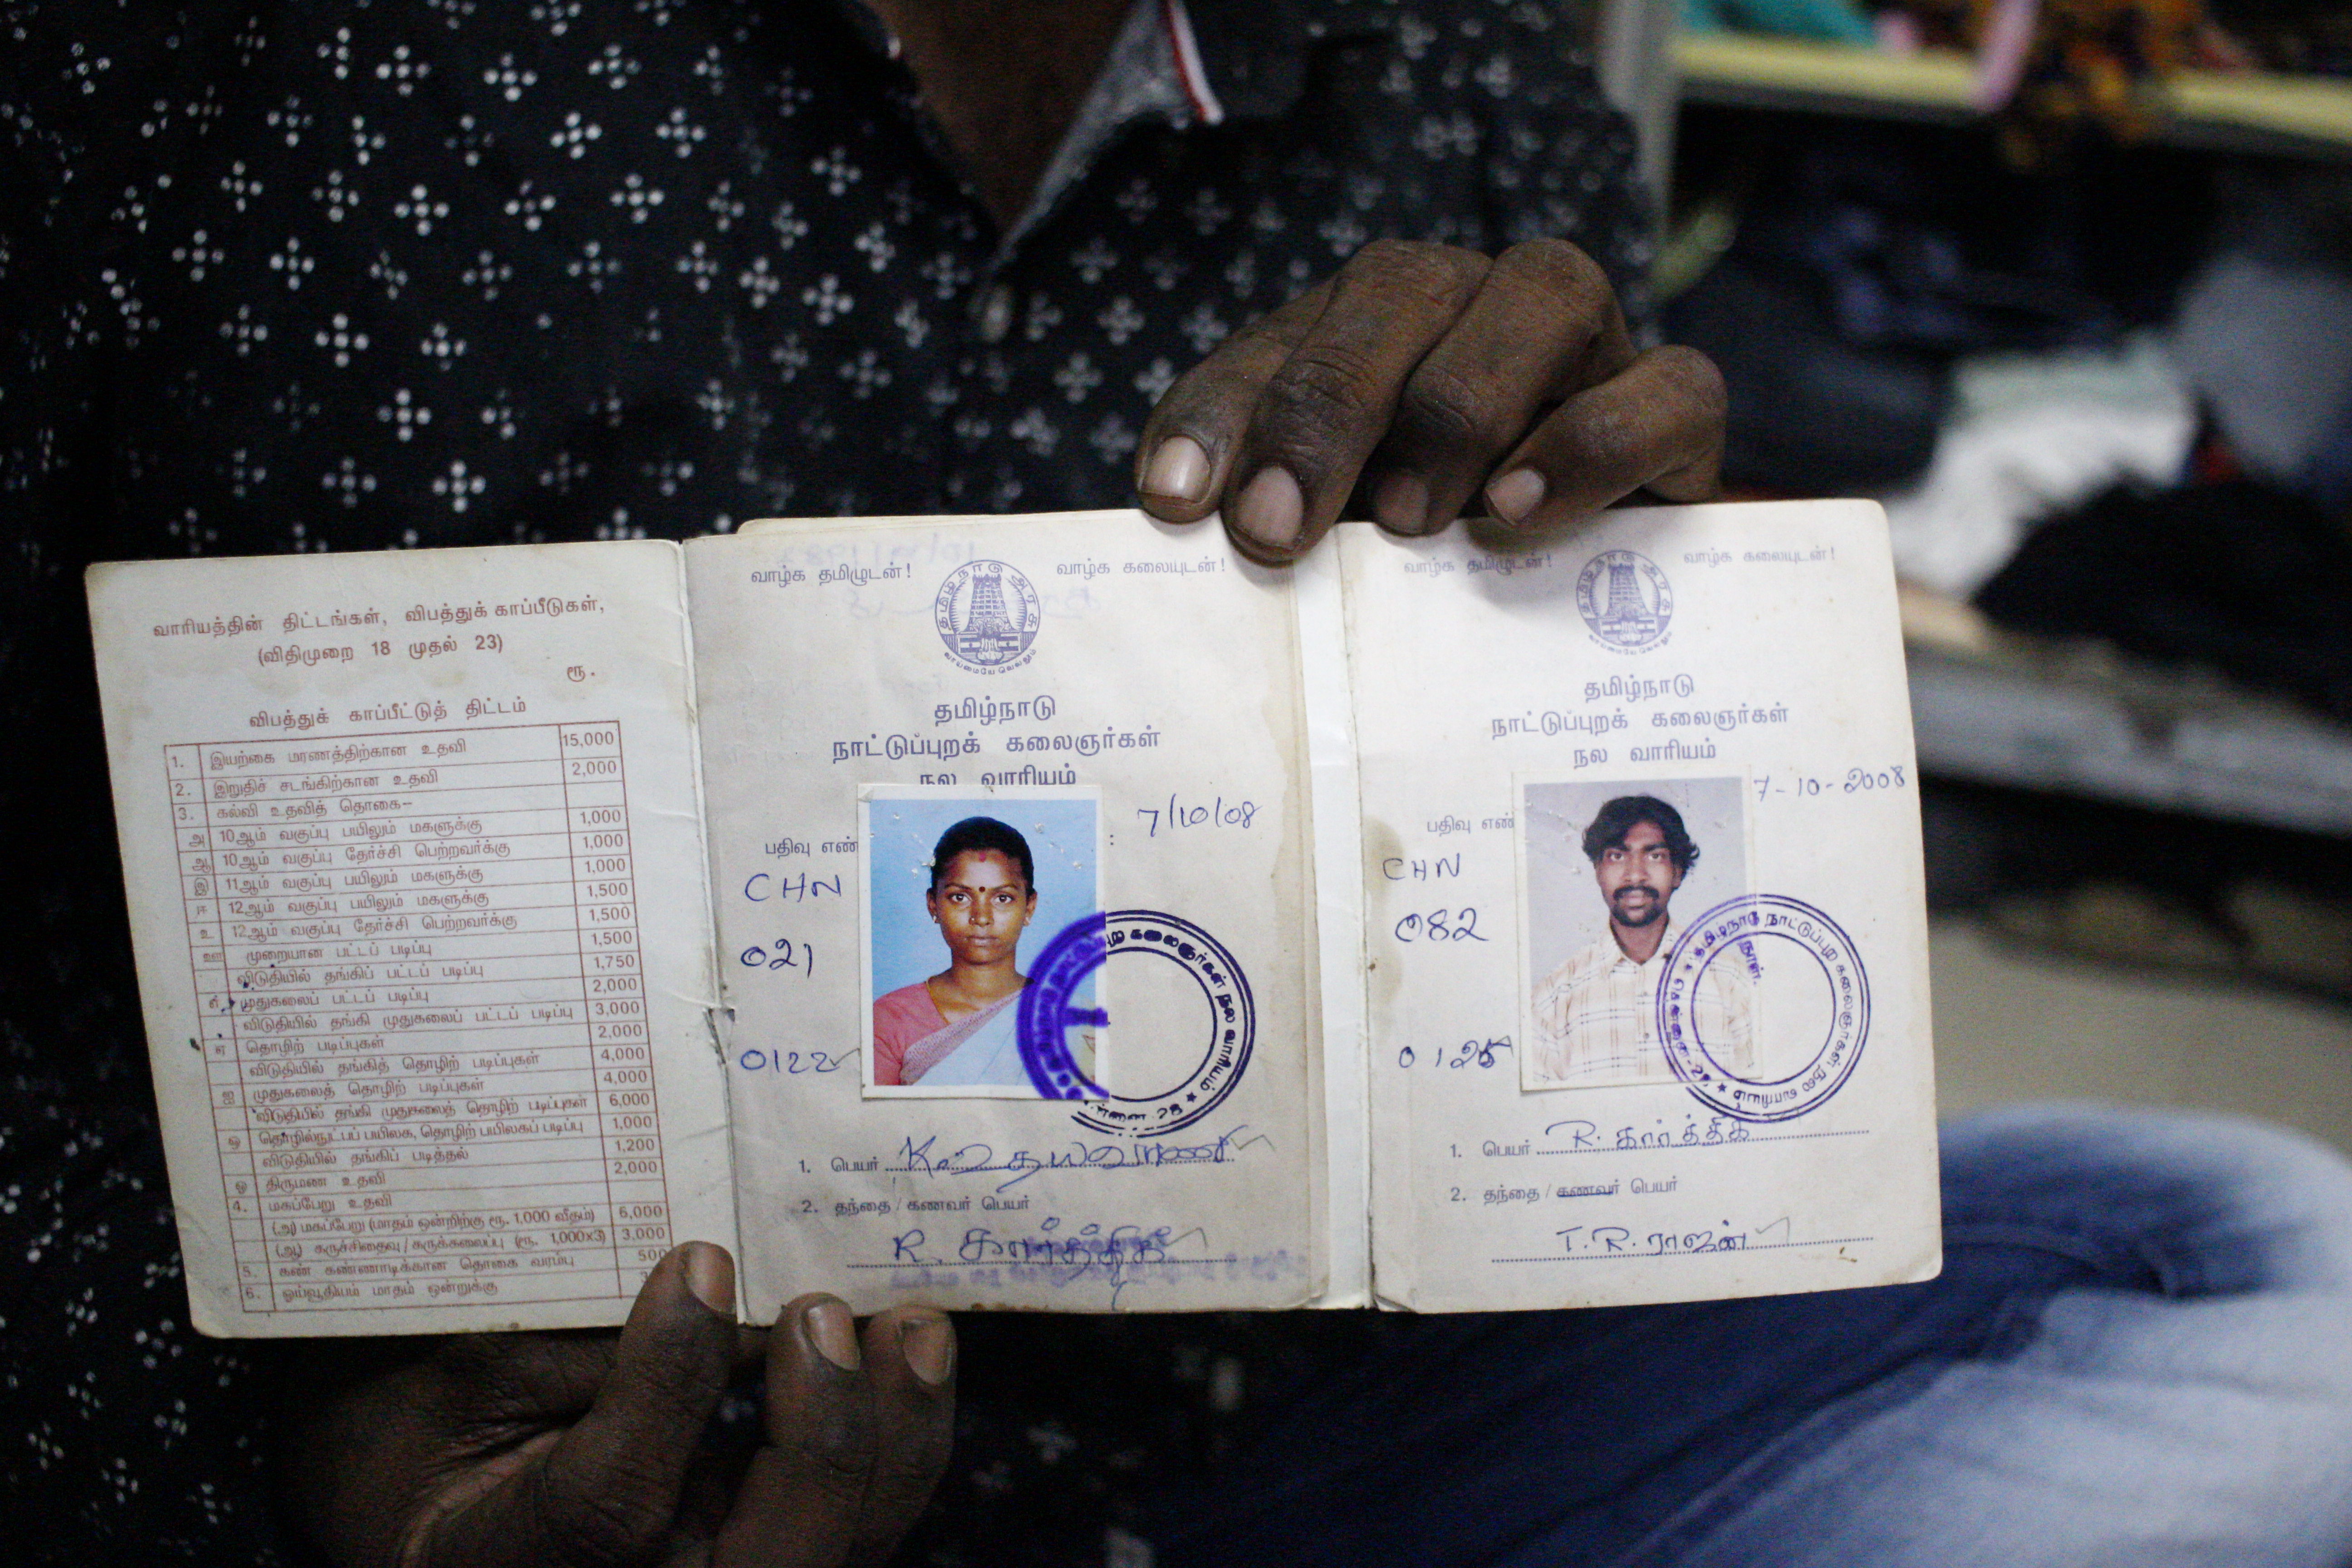 வாரியத்தின் திட்டங்கள், விபத்துக் காப்பீடுகள்,
(விதிமுறை 18 முதல் 23)
ரூ.
விபத்துக் காப்பீட்டுத் திட்டம்
1. இயற்கை மரணத்திற்கான உதவி 15,000
2. இறுதிச் சடங்கிற்கான உதவி 2,000
3. கல்வி உதவித் தொகை–
அ 10ஆம் வகுப்பு பயிலும் மகளுக்கு 1,000
ஆ 10ஆம் வகுப்பு தேர்ச்சி பெற்றவர்க்கு 1,000
இ 11ஆம் வகுப்பு பயிலும் மகளுக்கு 1,000
ஈ 12ஆம் வகுப்பு பயிலும் மகளுக்கு 1,500
உ 12ஆம் வகுப்பு தேர்ச்சி பெற்றவர்க்கு 1,500
ஊ முறையான பட்டப் படிப்பு 1,500
விடுதியில் தங்கிப் பட்டப் படிப்பு 1,750
எ முதுகலைப் பட்டப் படிப்பு 2,000
விடுதியில் தங்கி முதுகலைப் பட்டப் படிப்பு 3,000
ஏ தொழிற் படிப்புகள் 2,000
விடுதியில் தங்கித் தொழிற் படிப்புகள் 4,000
ஐ முதுகலைத் தொழிற் படிப்புகள் 4,000
விடுதியில் தங்கி முதுகலைத் தொழிற் படிப்புகள் 6,000
ஒ தொழில்நுட்பப் பயிலக, தொழிற் பயிலகப் படிப்பு 1,000
விடுதியில் தங்கிப் படித்தல் 1,200
ஓ திருமண உதவி 2,000
4. மகப்பேறு உதவி
(அ) மகப்பேறு (மாதம் ஒன்றிற்கு ரூ. 1,000 வீதம்) 6,000
(ஆ) கருச்சிதைவு / கருக்கலைப்பு (ரூ. 1,000x3) 3,000
5. கண் கண்ணாடிக்கான தொகை வரம்பு 500
6. ஓய்வூதியம் மாதம் ஒன்றுக்கு
வாழ்க தமிழுடன்! வாழ்க கலையுடன்!
தமிழ்நாடு அரசு
வாய்மையே வெல்லும்
தமிழ்நாடு
நாட்டுப்புறக் கலைஞர்கள்
நல வாரியம்
7/10/08
பதிவு எண் :
CHN
021
0122
கலைஞர்கள் நல வாரியம் ★
1. பெயர் K. உதயவாணி
2. தந்தை / கணவர் பெயர்
R. கார்த்திக்
வாழ்க தமிழுடன்! வாழ்க கலையுடன்!
தமிழ்நாடு அரசு
வாய்மையே வெல்லும்
தமிழ்நாடு
நாட்டுப்புறக் கலைஞர்கள்
நல வாரியம்
7-10-2008
பதிவு எண்
CHN
082
0125
தமிழ்நாடு நாட்டுப்புற கலைஞர்கள் நல வாரியம் ★ சென்னை-28
நாள்.
1. பெயர் R. கார்த்திக்
2. தந்தை / கணவர் பெயர்
T. R. ராஜன்